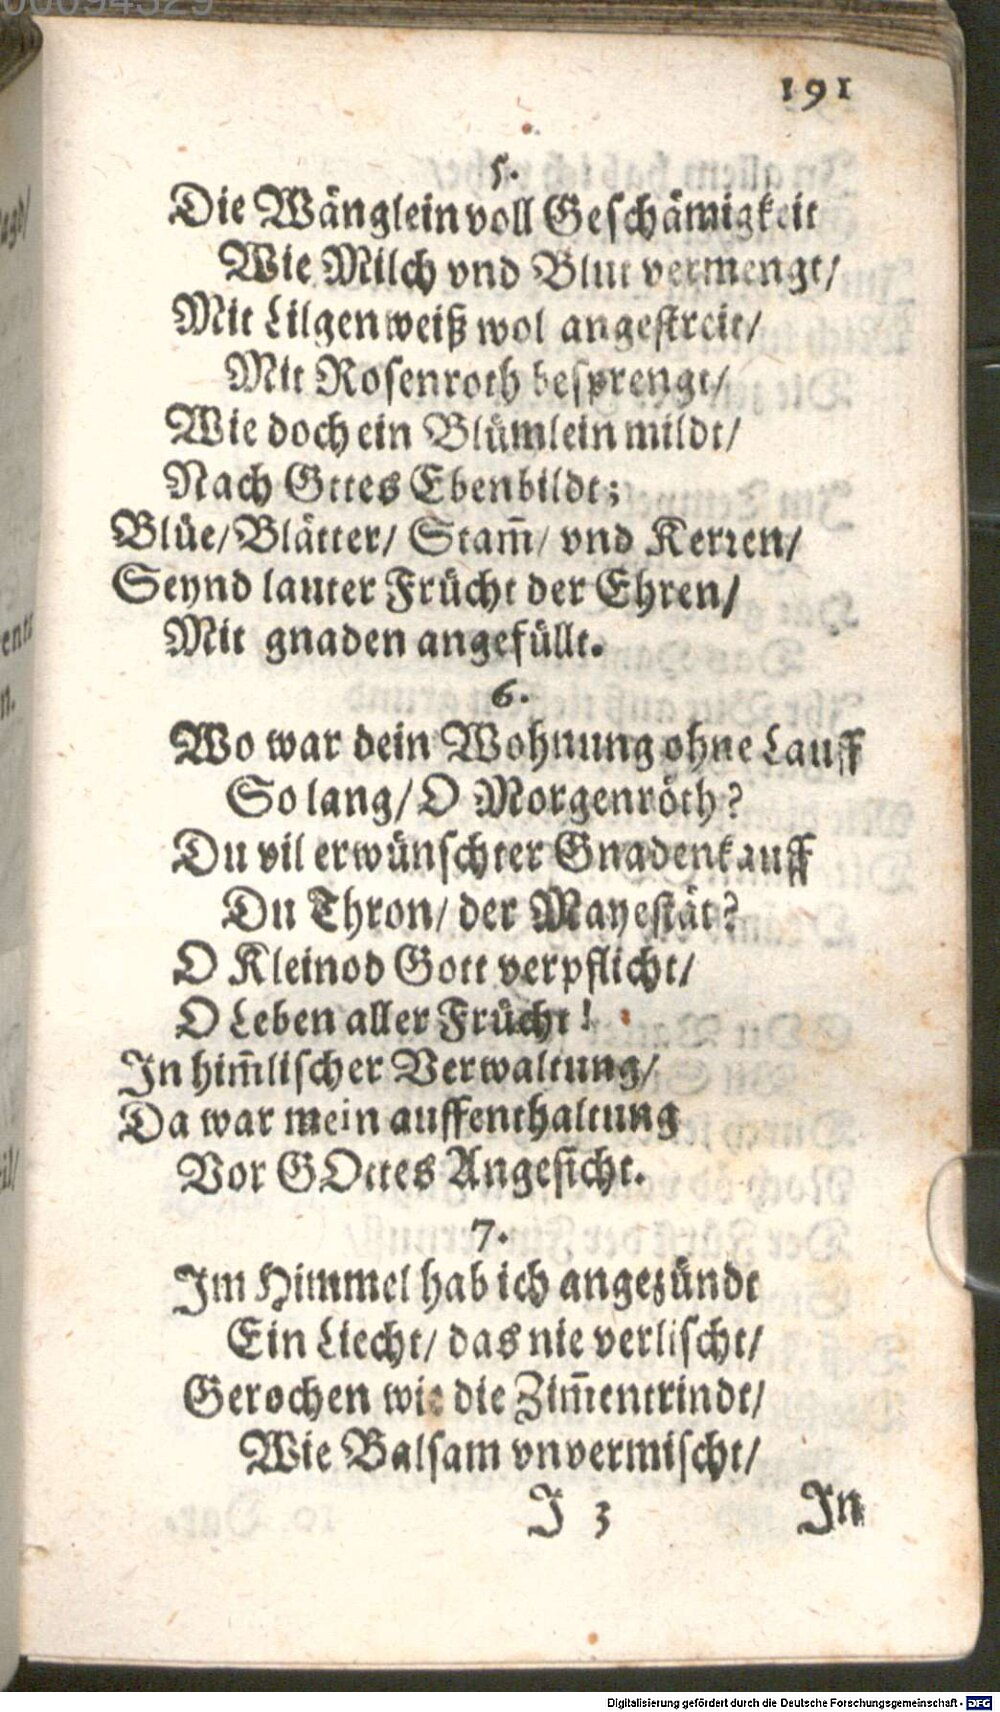 00094329
191
5.
Die Wänglein voll Geschämigkeit
Wie Milch vnd Blut vermengt/
Mit Lilgen weiß wol angestreit/
Mit Rosenroth besprengt/
Wie doch ein Blümlein mildt/
Nach Gttes Ebenbildt;
Blüe/ Blätter/ Stam̃/ vnd Kerren/
Seynd lauter Frücht der Ehren/
Mit gnaden angefüllt.
6.
Wo war dein Wohnung ohne Lauff
So lang/ O Morgenröth?
Du vil erwünschter Gnadenkauff
Du Thron/ der Mayestät?
O Kleinod Gott verpflicht/
O Leben aller Frücht!
In him̃lischer Verwaltung/
Da war mein auffenthaltung
Vor GOttes Angesicht.
7.
Im Himmel hab ich angezündt
Ein Liecht/ das nie verlischt/
Gerochen wie die Zim̃entrindt/
Wie Balsam vnvermischt/
J 3 In
Digitalisierung gefördert durch die Deutsche Forschungsgemeinschaft - DFG